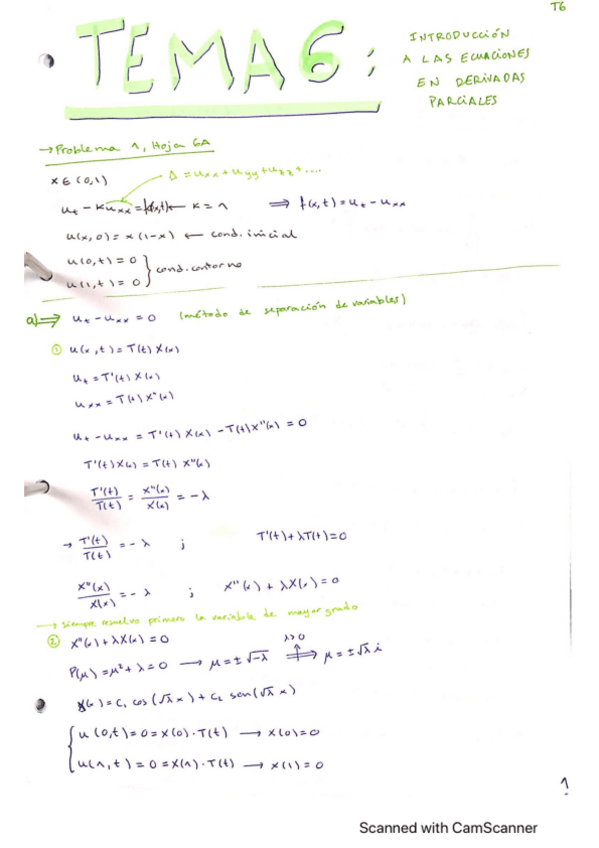 T6
TEMA 6:
INTRODUCCIÓN
A LAS ECUACIONES
EN DERIVADAS
PARCIALES
→Problema 1, Hoja 6A
x ∈ (0,1)
Δ = uxx + uyy + uzz + ....
ut - kuxx = f(x,t) ← k = 1 ⟹ f(x,t) = ut - uxx
u(x,0) = x(1-x) ← cond. inicial
u(0,t) = 0
u(1,t) = 0 } cond. contorno
a)⟹ ut - uxx = 0 (método de separación de variables)
① u(x,t) = T(t) X(x)
ut = T'(t) X(x)
uxx = T(t) X''(x)
ut - uxx = T'(t) X(x) - T(t) X''(x) = 0
T'(t) X(x) = T(t) X''(x)
T'(t)/T(t) = X''(x)/X(x) = -λ
→ T'(t)/T(t) = -λ ; T'(t) + λT(t) = 0
X''(x)/X(x) = -λ ; X''(x) + λX(x) = 0
→ siempre resuelvo primero la variable de mayor grado
② X''(x) + λX(x) = 0
λ>0
P(μ) = μ² + λ = 0 → μ = ±√-λ ⟹ μ = ±√λ i
X(x) = C1 cos(√λ x) + C2 sen(√λ x)
{ u(0,t) = 0 = X(0)·T(t) → X(0) = 0
u(1,t) = 0 = X(1)·T(t) → X(1) = 0
1
Scanned with CamScanner